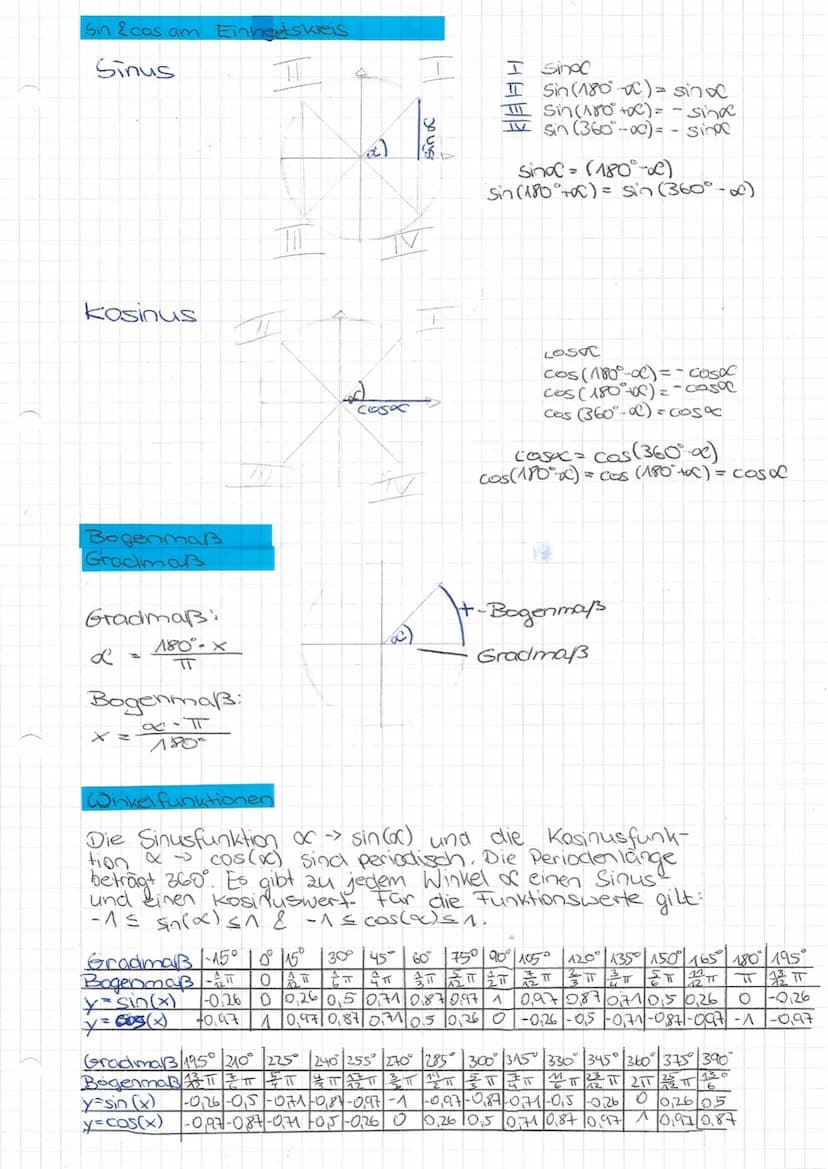 Sin & cos am Einheitskreis
Sinus
II
I
α
sin α
III
IV
I sinα
II sin(180°-α) = sinα
III sin(180°+α) = - sinα
IV sin(360°-α) = - sinα
sinα = (180°-α)
sin(180°+α) = sin(360°-α)
Kosinus
II
I
α
cosα
III
IV
cosα
cos(180°-α) = - cosα
cos(180°+α) = - cosα
cos(360°-α) = cosα
cosα = cos(360°-α)
cos(180°-α) = cos(180°+α) = cosα
Bogenmaß
Gradmaß
Gradmaß:
α = 180° · x / π
Bogenmaß:
x = α · π / 180°
α
Bogenmaß
Gradmaß
Winkelfunktionen
Die Sinusfunktion α → sin(α) und die Kosinusfunk-
tion α → cos(α) sind periodisch. Die Periodenlänge
beträgt 360°. Es gibt zu jedem Winkel α einen Sinus-
und einen Kosinuswert. Für die Funktionswerte gilt:
-1 ≤ sin(α) ≤ 1 & -1 ≤ cos(α) ≤ 1.
Gradmaß | -15° | 0° | 15° | 30° | 45° | 60° | 75° | 90° | 105° | 120° | 135° | 150° | 165° | 180° | 195°
Bogenmaß | -1/12 π | 0 | 1/12 π | 1/6 π | 1/4 π | 1/3 π | 5/12 π | 1/2 π | 7/12 π | 2/3 π | 3/4 π | 5/6 π | 11/12 π | π | 13/12 π
y = sin(x) | -0,26 | 0 | 0,26 | 0,5 | 0,71 | 0,87 | 0,97 | 1 | 0,97 | 0,87 | 0,71 | 0,5 | 0,26 | 0 | -0,26
y = cos(x) | +0,97 | 1 | 0,97 | 0,87 | 0,71 | 0,5 | 0,26 | 0 | -0,26 | -0,5 | -0,71 | -0,87 | -0,97 | -1 | -0,97
Gradmaß | 195° | 210° | 225° | 240° | 255° | 270° | 285° | 300° | 315° | 330° | 345° | 360° | 375° | 390°
Bogenmaß | 13/12 π | 7/6 π | 5/4 π | 4/3 π | 17/12 π | 3/2 π | π | 5/3 π | 7/4 π | 11/6 π | 23/12 π | 2π | 25/12 π | 13/6
y = sin(x) | -0,26 | -0,5 | -0,71 | -0,87 | -0,97 | -1 | -0,97 | -0,87 | -0,71 | -0,5 | -0,26 | 0 | 0,26 | 0,5
y = cos(x) | -0,97 | -0,87 | -0,71 | -0,5 | -0,26 | 0 | 0,26 | 0,5 | 0,71 | 0,87 | 0,97 | 1 | 0,97 | 0,87